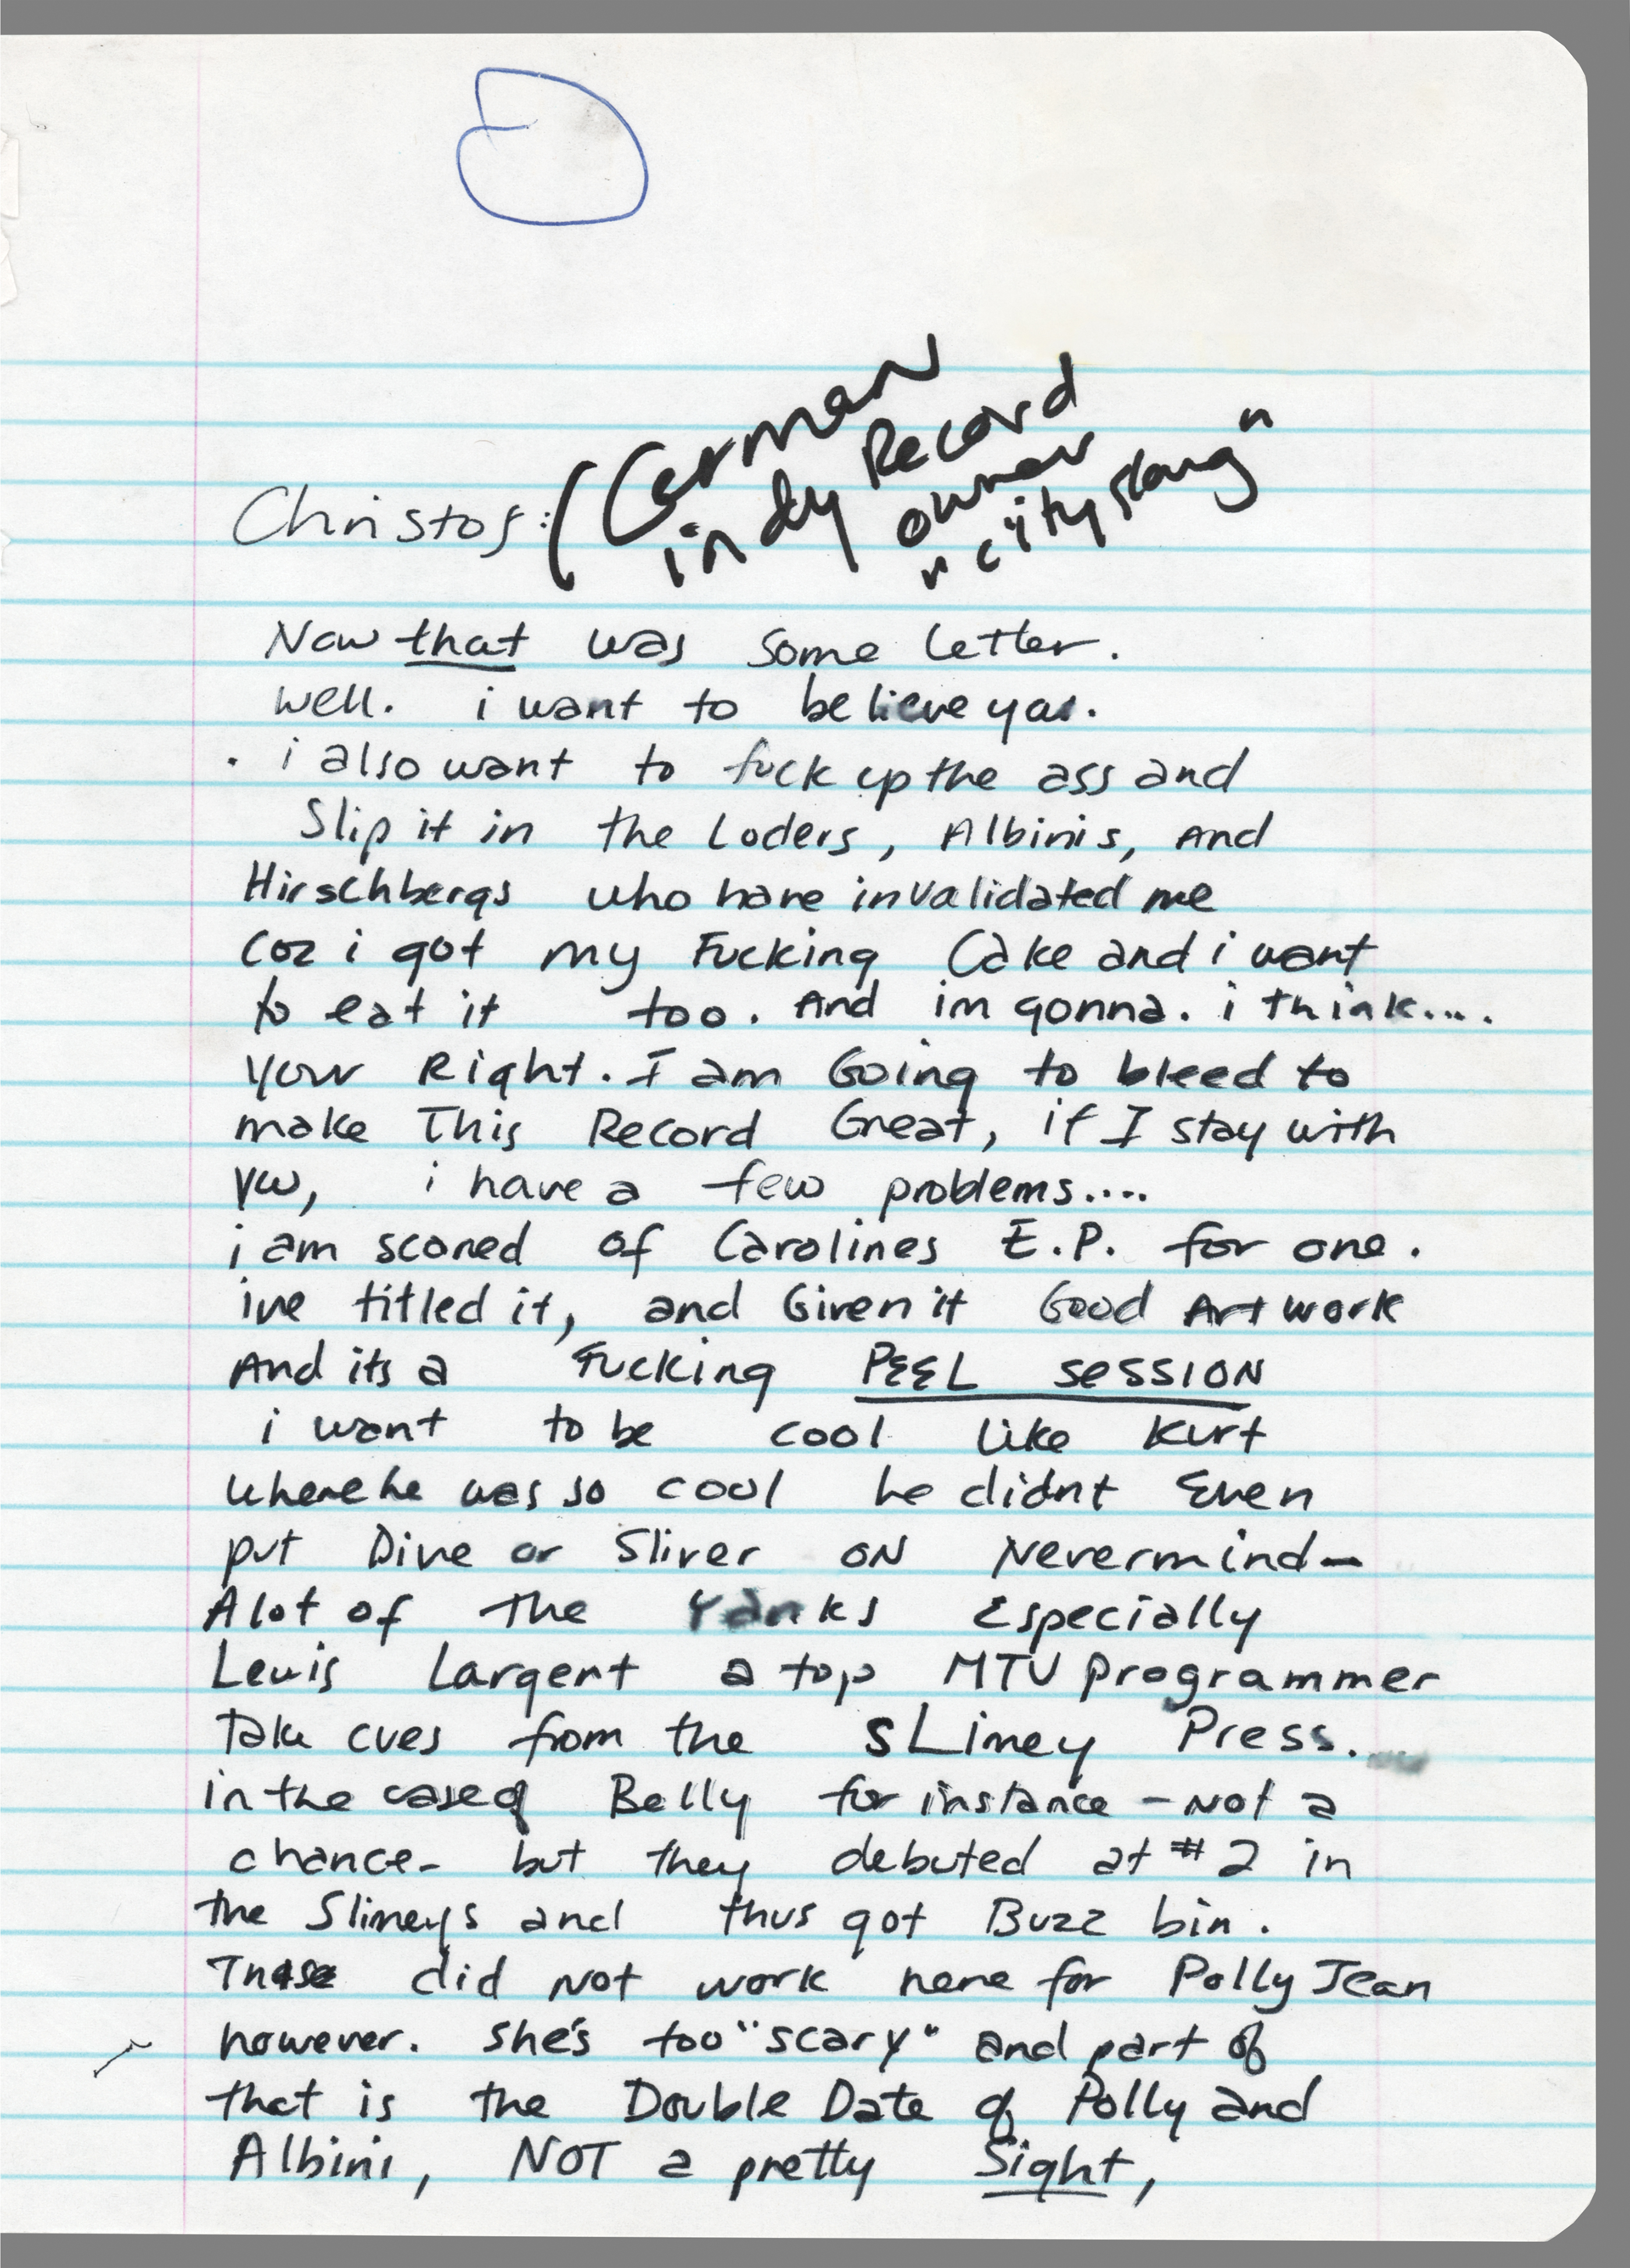 Christof: (German
indy Record
owner
"city slang"
Now that was some letter.
well. i want to believe you.
. i also want to fuck up the ass and
slip it in the Loders, Albinis, And
Hirschbergs who have invalidated me
coz i got my Fucking Cake and i want
to eat it too. And im gonna. i think....
your Right. I am Going to bleed to
make This Record Great, if I stay with
you, i have a few problems....
i am scared of Carolines E.P. for one.
ive titled it, and Given it Good Artwork
And its a Fucking PEEL SESSION
i want to be cool like Kurt
where he was so cool he didnt Even
put Dive or Sliver ON Nevermind—
A lot of the Yanks Especially
Lewis Largent a top MTV programmer
Take cues from the sLimey Press.
in the case of Belly for instance - Not a
chance - but they debuted at #2 in
the Slimeys and thus got Buzz bin.
did not work here for Polly Jean
however. She's too "scary" and part of
that is the Double Date of Polly and
Albini, NOT a pretty Sight,